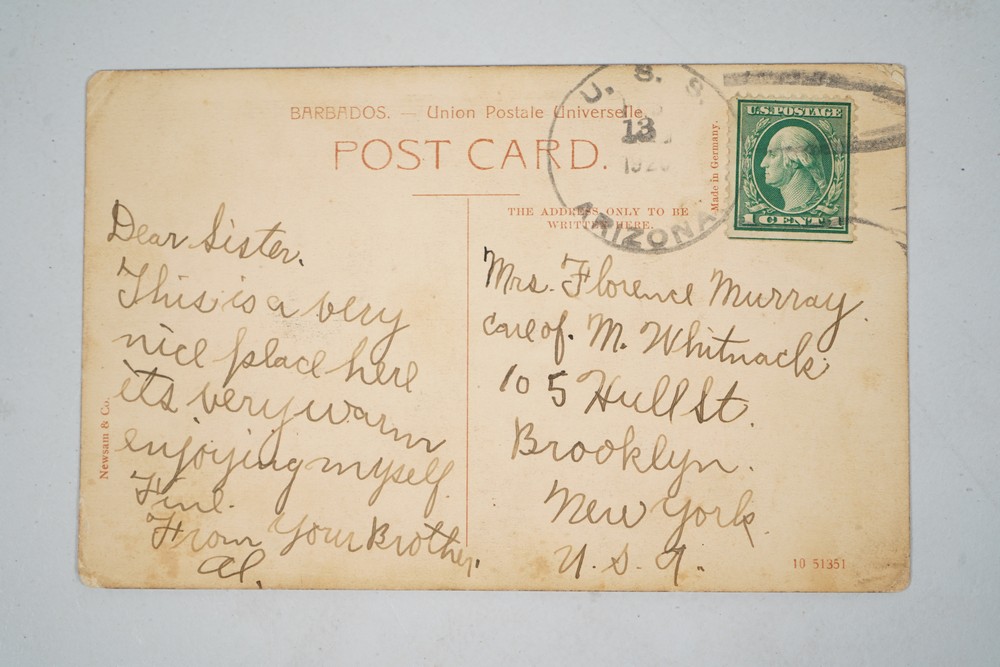 BARBADOS. — Union Postale Universelle.
POST CARD.
THE ADDRESS ONLY TO BE
WRITTEN HERE.
Made in Germany.
Newsam & Co.
U. S. S.
13
ARIZONA
U.S. POSTAGE
1 CENT 1
Dear Sister.
This is a very
nice place here
its very warm
enjoying myself
Fine.
From Your Brother,
Al.
Mrs. Florence Murray.
care of. M. Whitnack
105 Hull St.
Brooklyn.
New York.
U. S. A.
10 51351